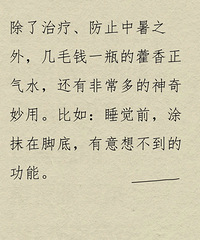 除了治疗、防止中暑之
外，几毛钱一瓶的藿香正
气水，还有非常多的神奇
妙用。比如：睡觉前，涂
抹在脚底，有意想不到的
功能。